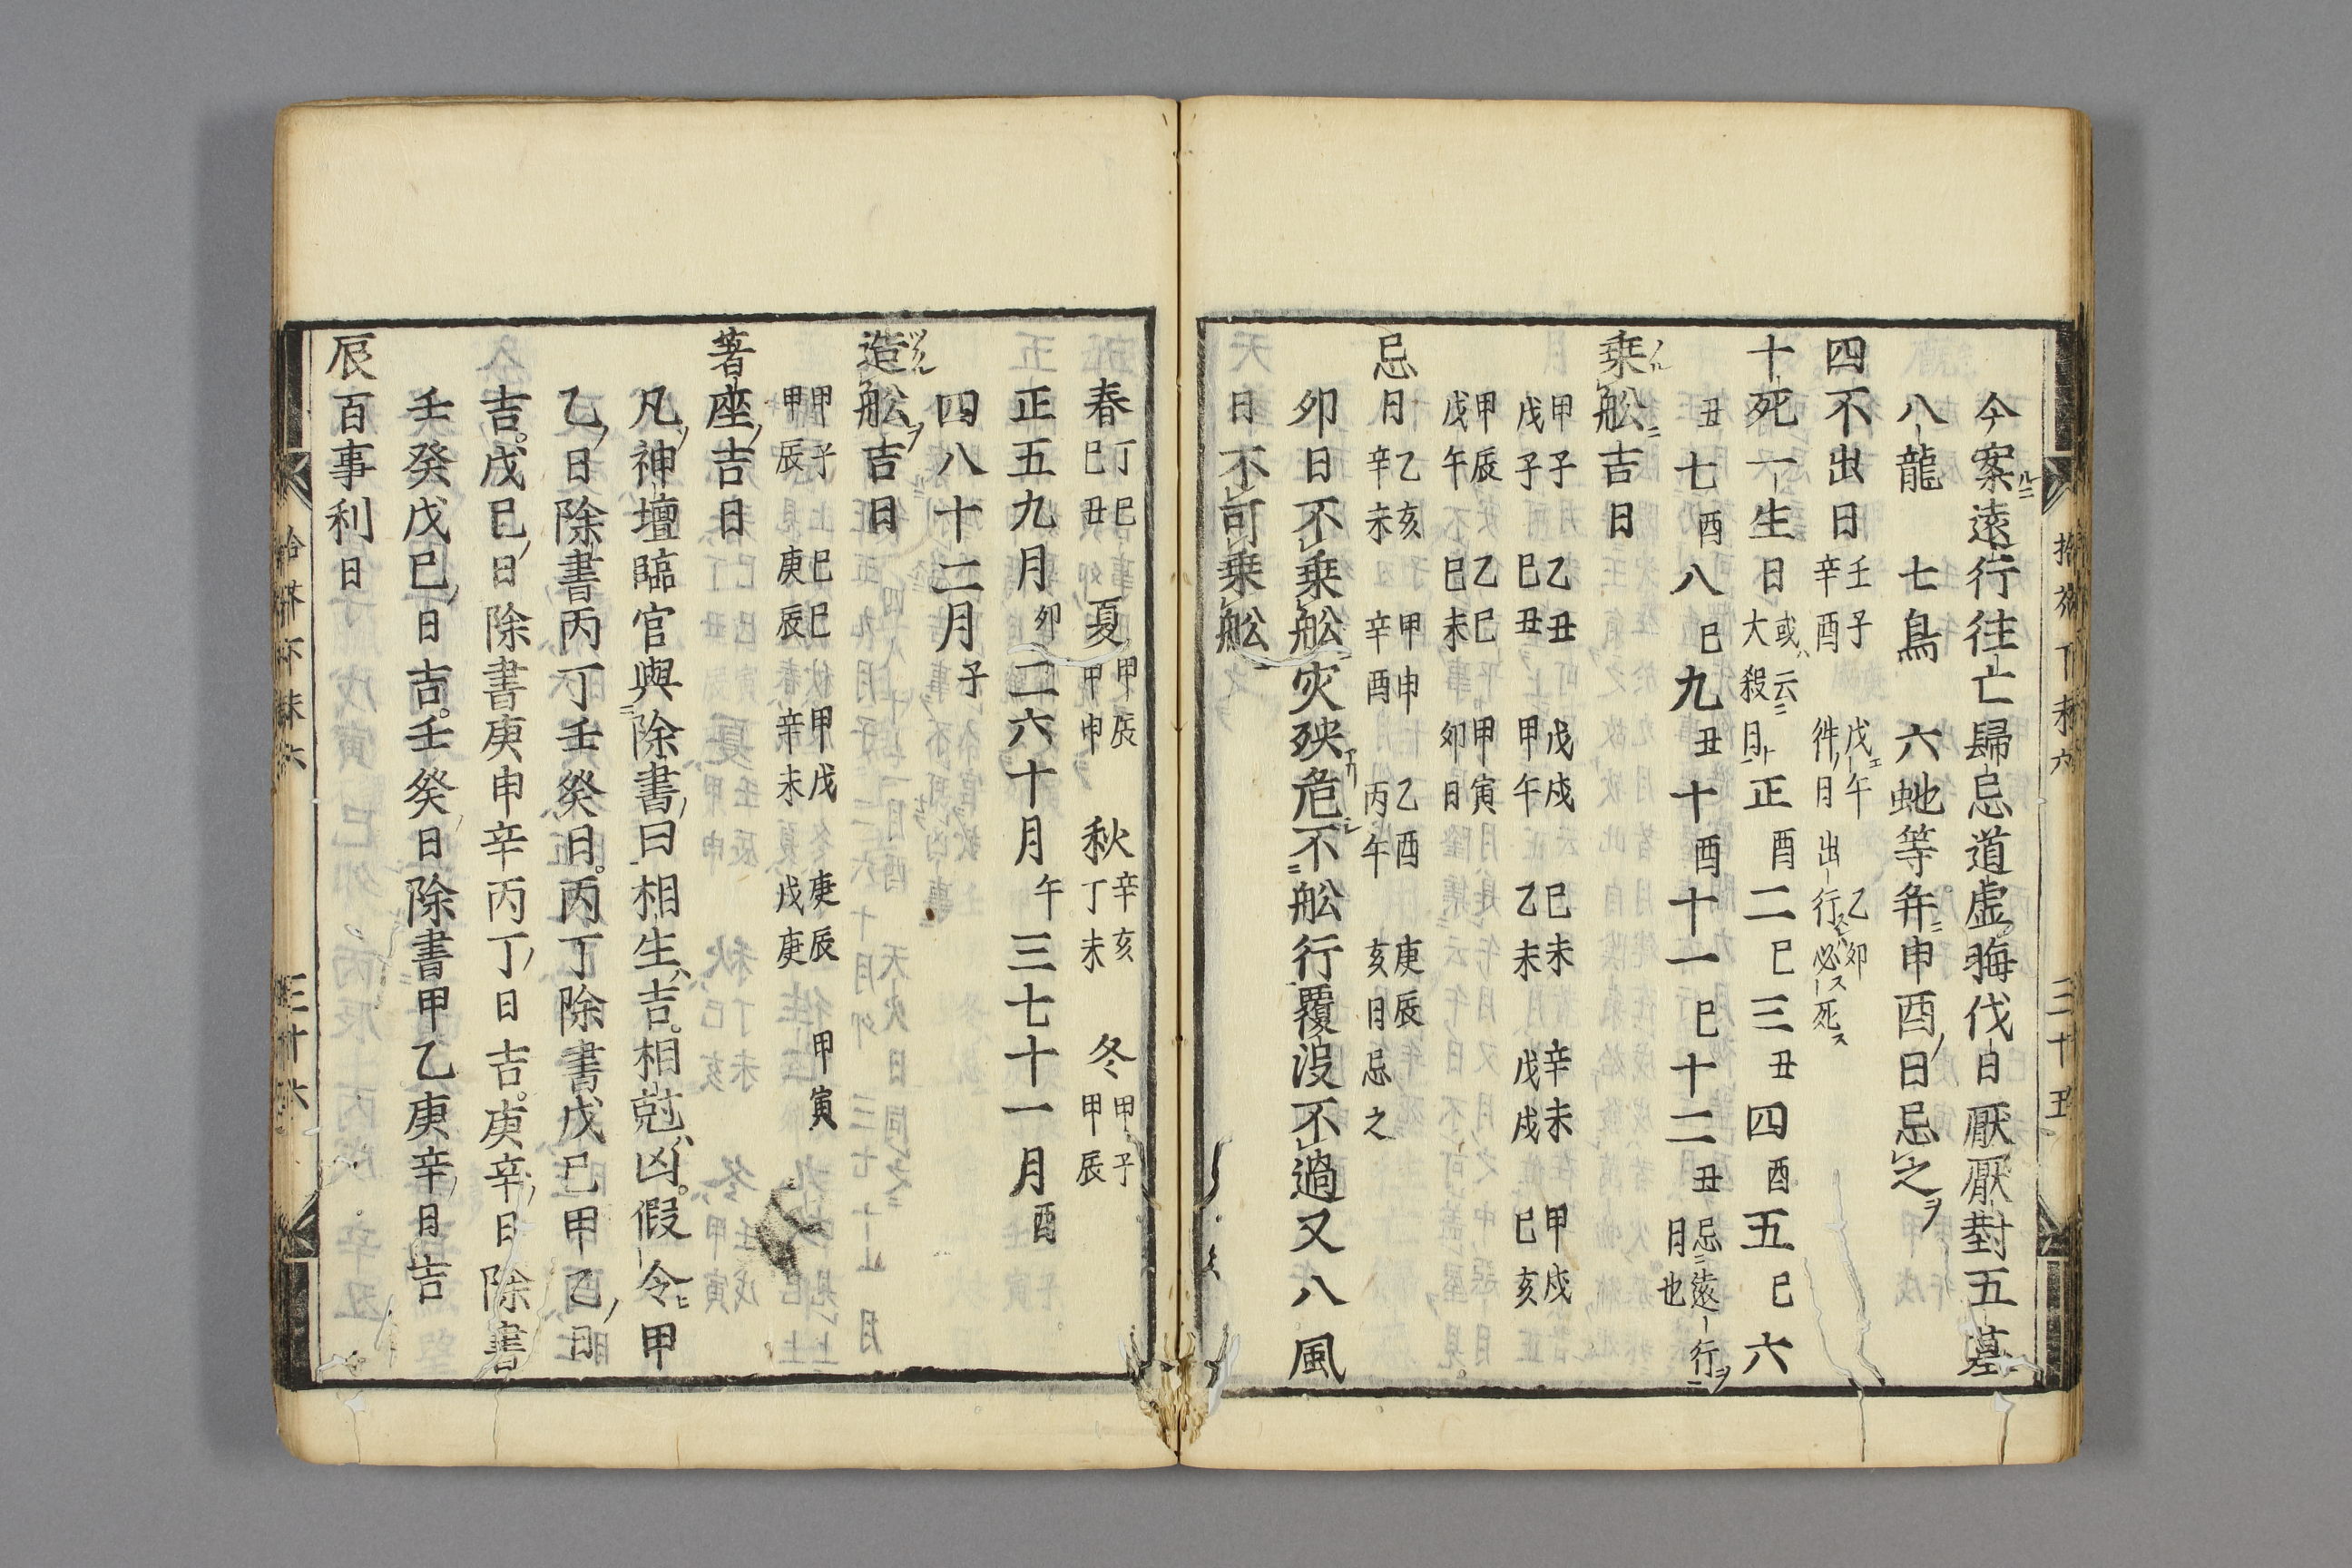 今案遠行往亡歸忌道虛晦伐日厭厭對五墓
八龍 七鳥 六虵等年申酉日忌之ヲ
四不出日 壬子 戊午 乙卯
辛酉 件日出行必死ス
十死一生日 或云
大殺日 正酉二巳三丑四酉五巳六
丑七酉八巳九丑十酉十一巳十二丑 忌遠行
日也
乗舩吉日
甲子 乙丑 戊戌 巳未 辛未 甲戌
戊子 巳丑 甲午 乙未 戊戌 巳亥
甲辰 乙巳 甲寅
戊午 巳未 卯日
忌日 乙亥 甲申 乙酉 庚辰
辛未 辛酉 丙午 亥日忌之
卯日不乗舩灾殃危不舩行覆没不過又八風
日不可乗舩
拾芥下末六 三十五
春 丁巳 夏 甲辰 秋 辛亥 冬 甲子
巳丑 甲申 丁未 甲辰
正五九月卯二六十月午三七十一月酉
四八十二月子
造舩吉日
甲子 巳巳 甲戊 庚辰 甲寅
甲辰 庚辰 辛未 戊庚
著座吉日
凡神壇臨官與除書曰相生吉相尅凶假令甲
乙日除書丙丁壬癸日丙丁除書戊巳甲乙日
吉戊巳日除書庚申辛丙丁日吉庚辛日除書
壬癸戊巳日吉壬癸日除書甲乙庚辛日吉
辰百事利日
拾芥下末六 三十六